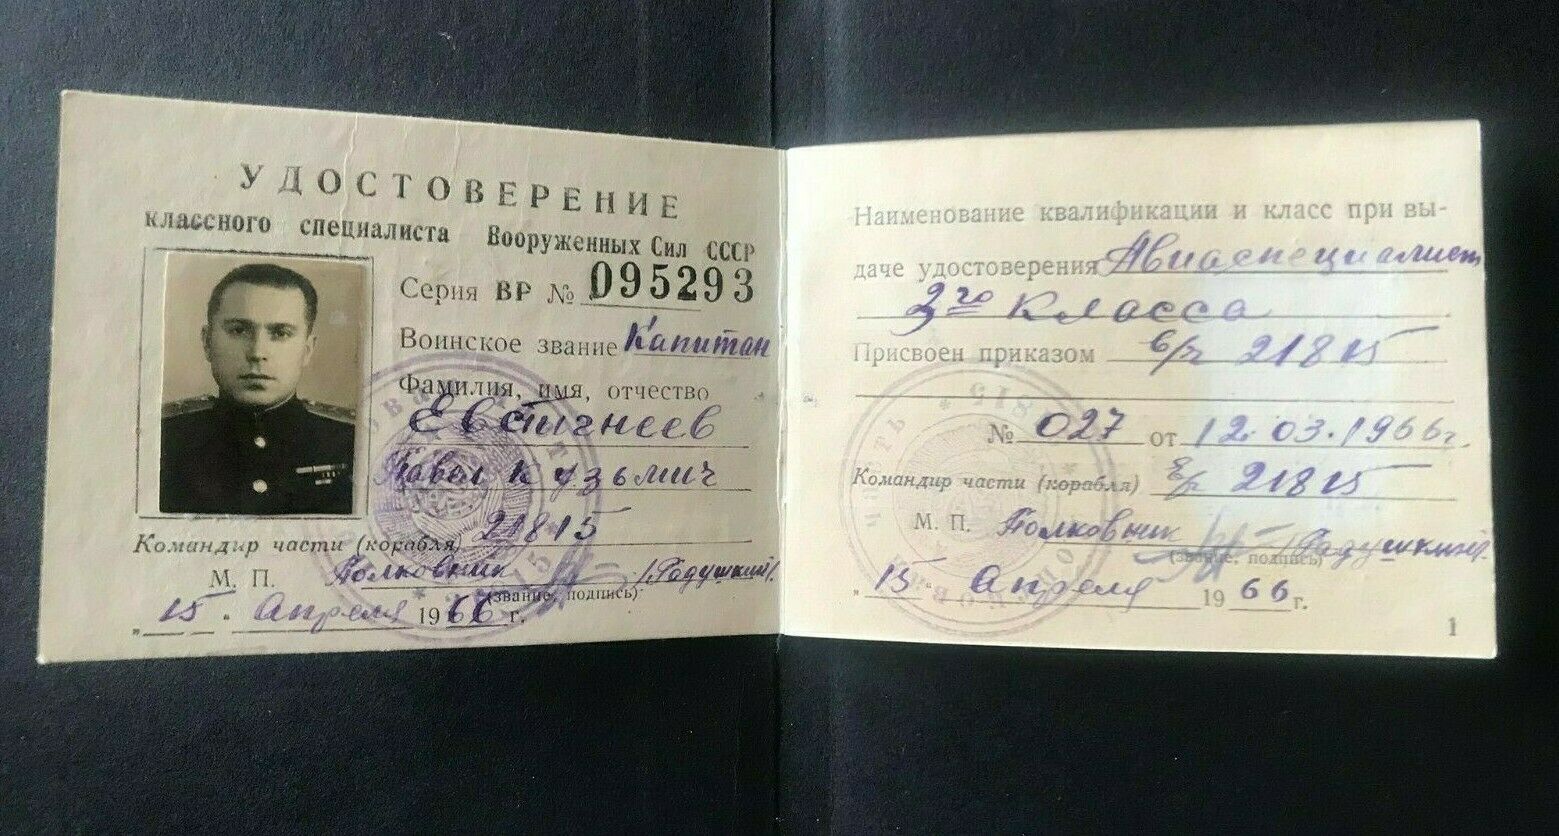 УДОСТОВЕРЕНИЕ
классного специалиста Вооруженных Сил СССР
Серия ВР № 095293
Воинское звание Капитан
Фамилия, имя, отчество
Евстигнеев
Павел Кузьмич
Командир части (корабля) 21815
М. П. Полковник /Гадушкин/
(звание, подпись)
„15" Апреля 1966 г.
Наименование квалификации и класс при вы-
даче удостоверения Авиаспециалист
3го класса
Присвоен приказом в/ч 21815
№ 027 от 12.03.1966г.
Командир части (корабля) в/ч 21815
М. П. Полковник
(звание, подпись)
„15" Апреля 1966 г.
1